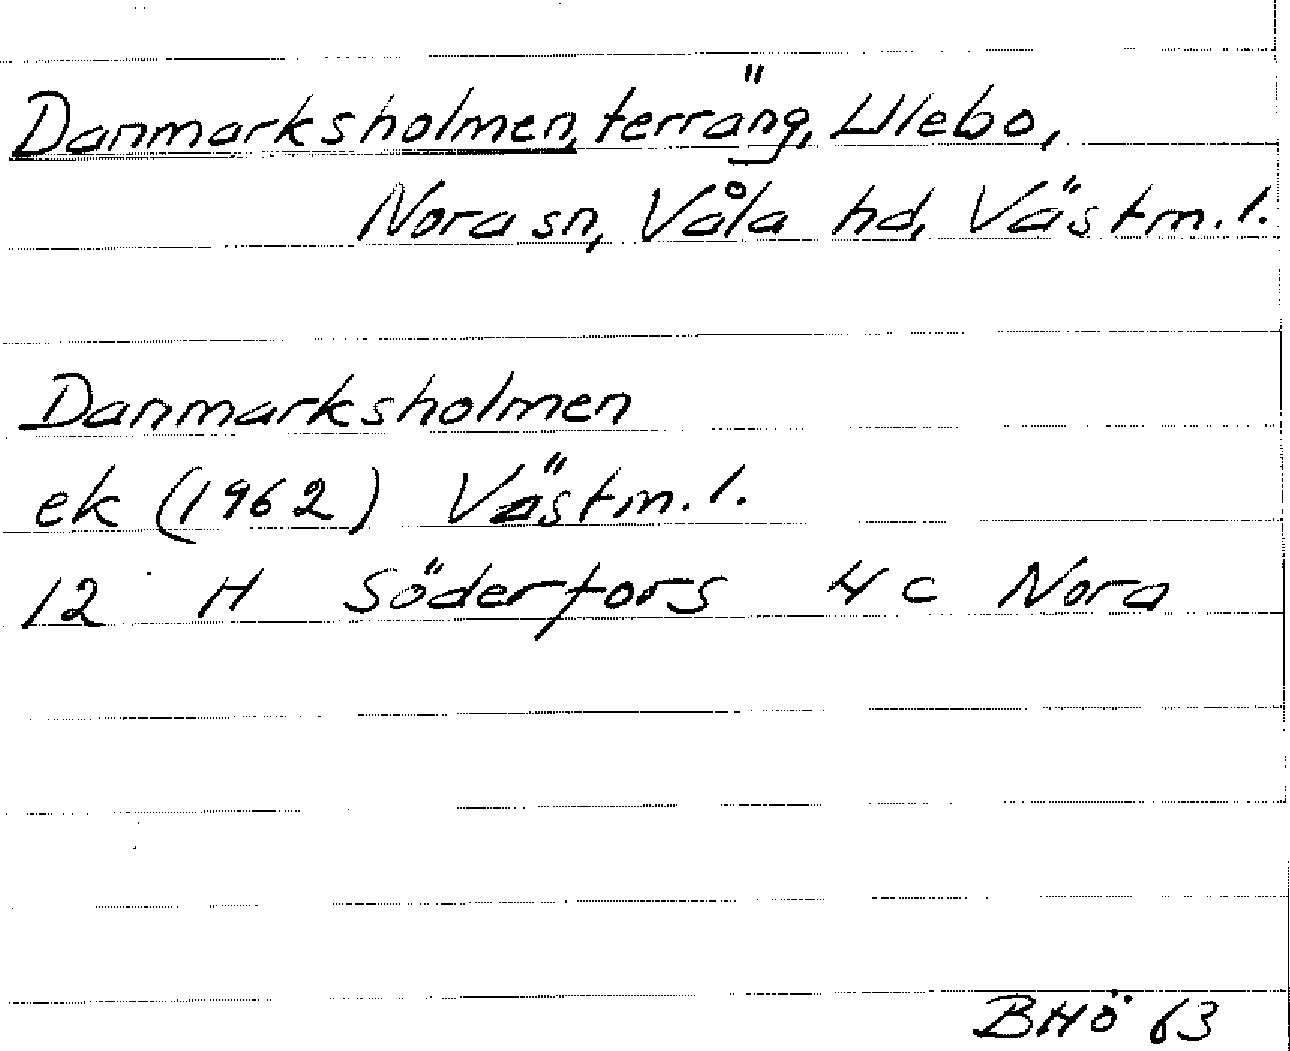 Danmarksholmen, terräng, Ulebo,
Nora sn, Våla hd, Västm. l.
Danmarksholmen
ek (1962) Västm. l.
12 H Söderfors 4 c Nora
BHÖ 63